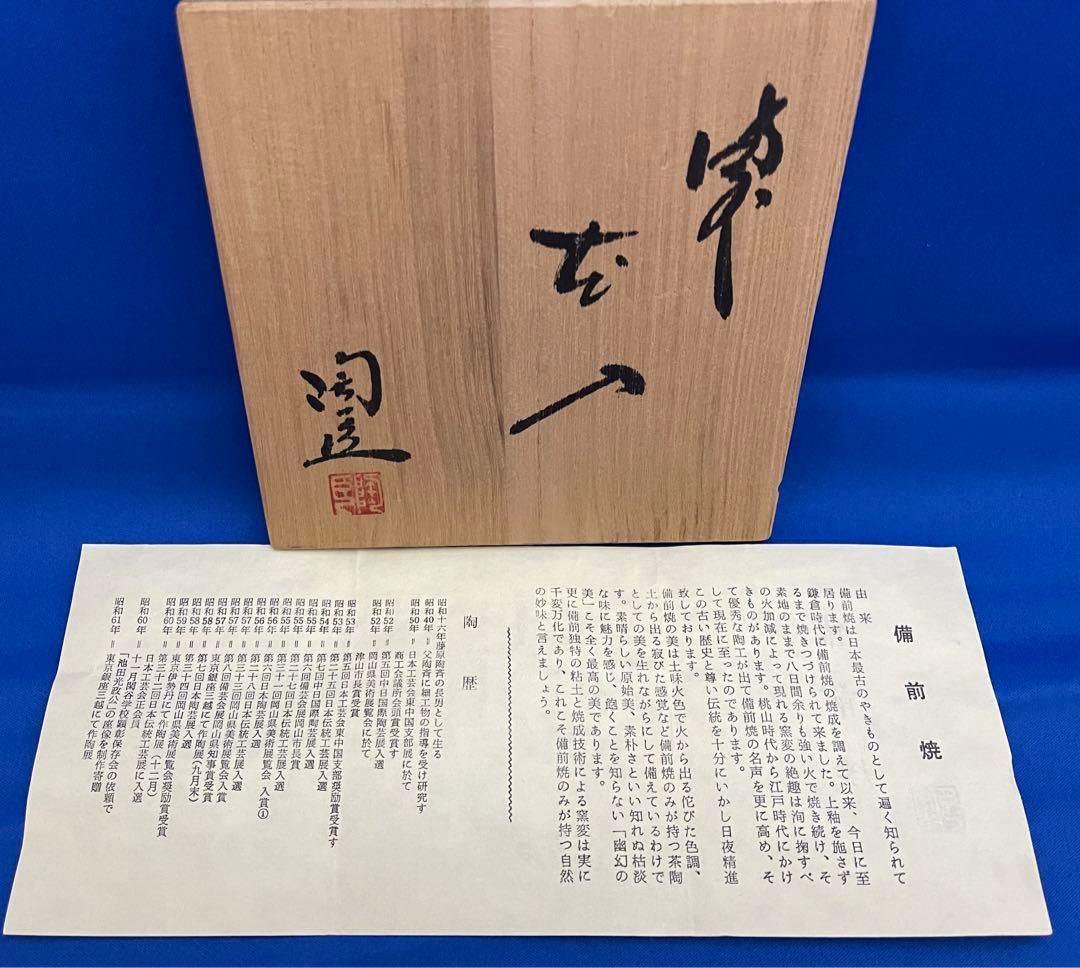 花入
陶
備前焼
由来
備前焼は日本最古のやきものとして遍く知られて
居ります。
鎌倉時代に備前焼の焼成を調えて以来、今日に至
るまで焼きつづけられて来ました。上釉を施さず
素地のままで八日間余りも強い火で焼き続け、そ
の火加減によって現れる窯変の絶趣は洵に掬すべ
きものがあります。桃山時代から江戸時代にかけ
て優秀な陶工が出て備前焼の名声を更に高め、そ
して現在に至ったのであります。
この古い歴史と尊い伝統を十分にいかし日夜精進
致しております。
備前焼の美は土味火色で火から出る佗びた色調、
土から出る寂びた感覚など備前焼のみが持つ茶陶
としての美を生れながらにして備えているわけで
す。素晴らしい原始美、素朴さといい知れぬ枯淡
な味に魅力を感じ、飽くことを知らない「幽幻の
美」こそ全く最高の美であります。
更に備前独特の粘土と焼成技術による窯変は実に
千変万化であり、これこそ備前焼のみが持つ自然
の妙味と言えましょう。
陶歴
昭和十六年藤原陶斉の長男として生る
昭和40年=父陶斉に細工物の指導を受け研究す
昭和50年=日本工芸会東中国支部展に於て
商工会議所会頭賞受賞す
昭和52年=第五回中日国際陶芸展入選
昭和52年=岡山県美術展覧会に於て
津山市長賞受賞
昭和53年=第五回日本工芸会東中国支部奨励賞受賞す
昭和53年=第二十五回日本伝統工芸展入選
昭和54年=第七回中日国際陶芸展入選
昭和55年=第六回備芸会展岡山市長賞
昭和55年=第二十七回日本伝統工芸展入選
昭和56年=第三十一回岡山県美術展覧会 入賞①
昭和56年=第六回日本陶芸展入選
昭和56年=第二十八回日本伝統工芸展入選
昭和57年=第三十三回岡山県美術展覧会入賞
昭和57年=第八回備芸会展岡山県知事賞受賞
昭和57年=東京銀座三越にて作陶展(九月末)
昭和58年=第七回日本陶芸展入選
昭和58年=第三十四回岡山県美術展覧会奨励賞受賞
昭和59年=東京伊勢丹にて作陶展(十二月)
昭和60年=第三十二回日本伝統工芸展に入選
日本工芸会正会員
昭和60年=十一月閑谷学校顕彰保存会の依頼で
「池田光政公」の座像を制作寄贈
昭和61年=東京銀座三越にて作陶展